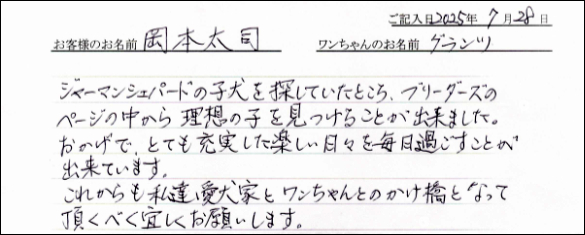 ご記入日2025年 7月28日
お客様のお名前 岡本太司 ワンちゃんのお名前 グランツ
ジャーマンシェパードの子犬を探していたところ、ブリーダーズの
ページの中から理想の子を見つけることが出来ました。
おかげで、とても充実した楽しい日々を毎日過ごすことが
出来ています。
これからも私達愛犬家とワンちゃんとのかけ橋となって
頂くべく宜しくお願いします。